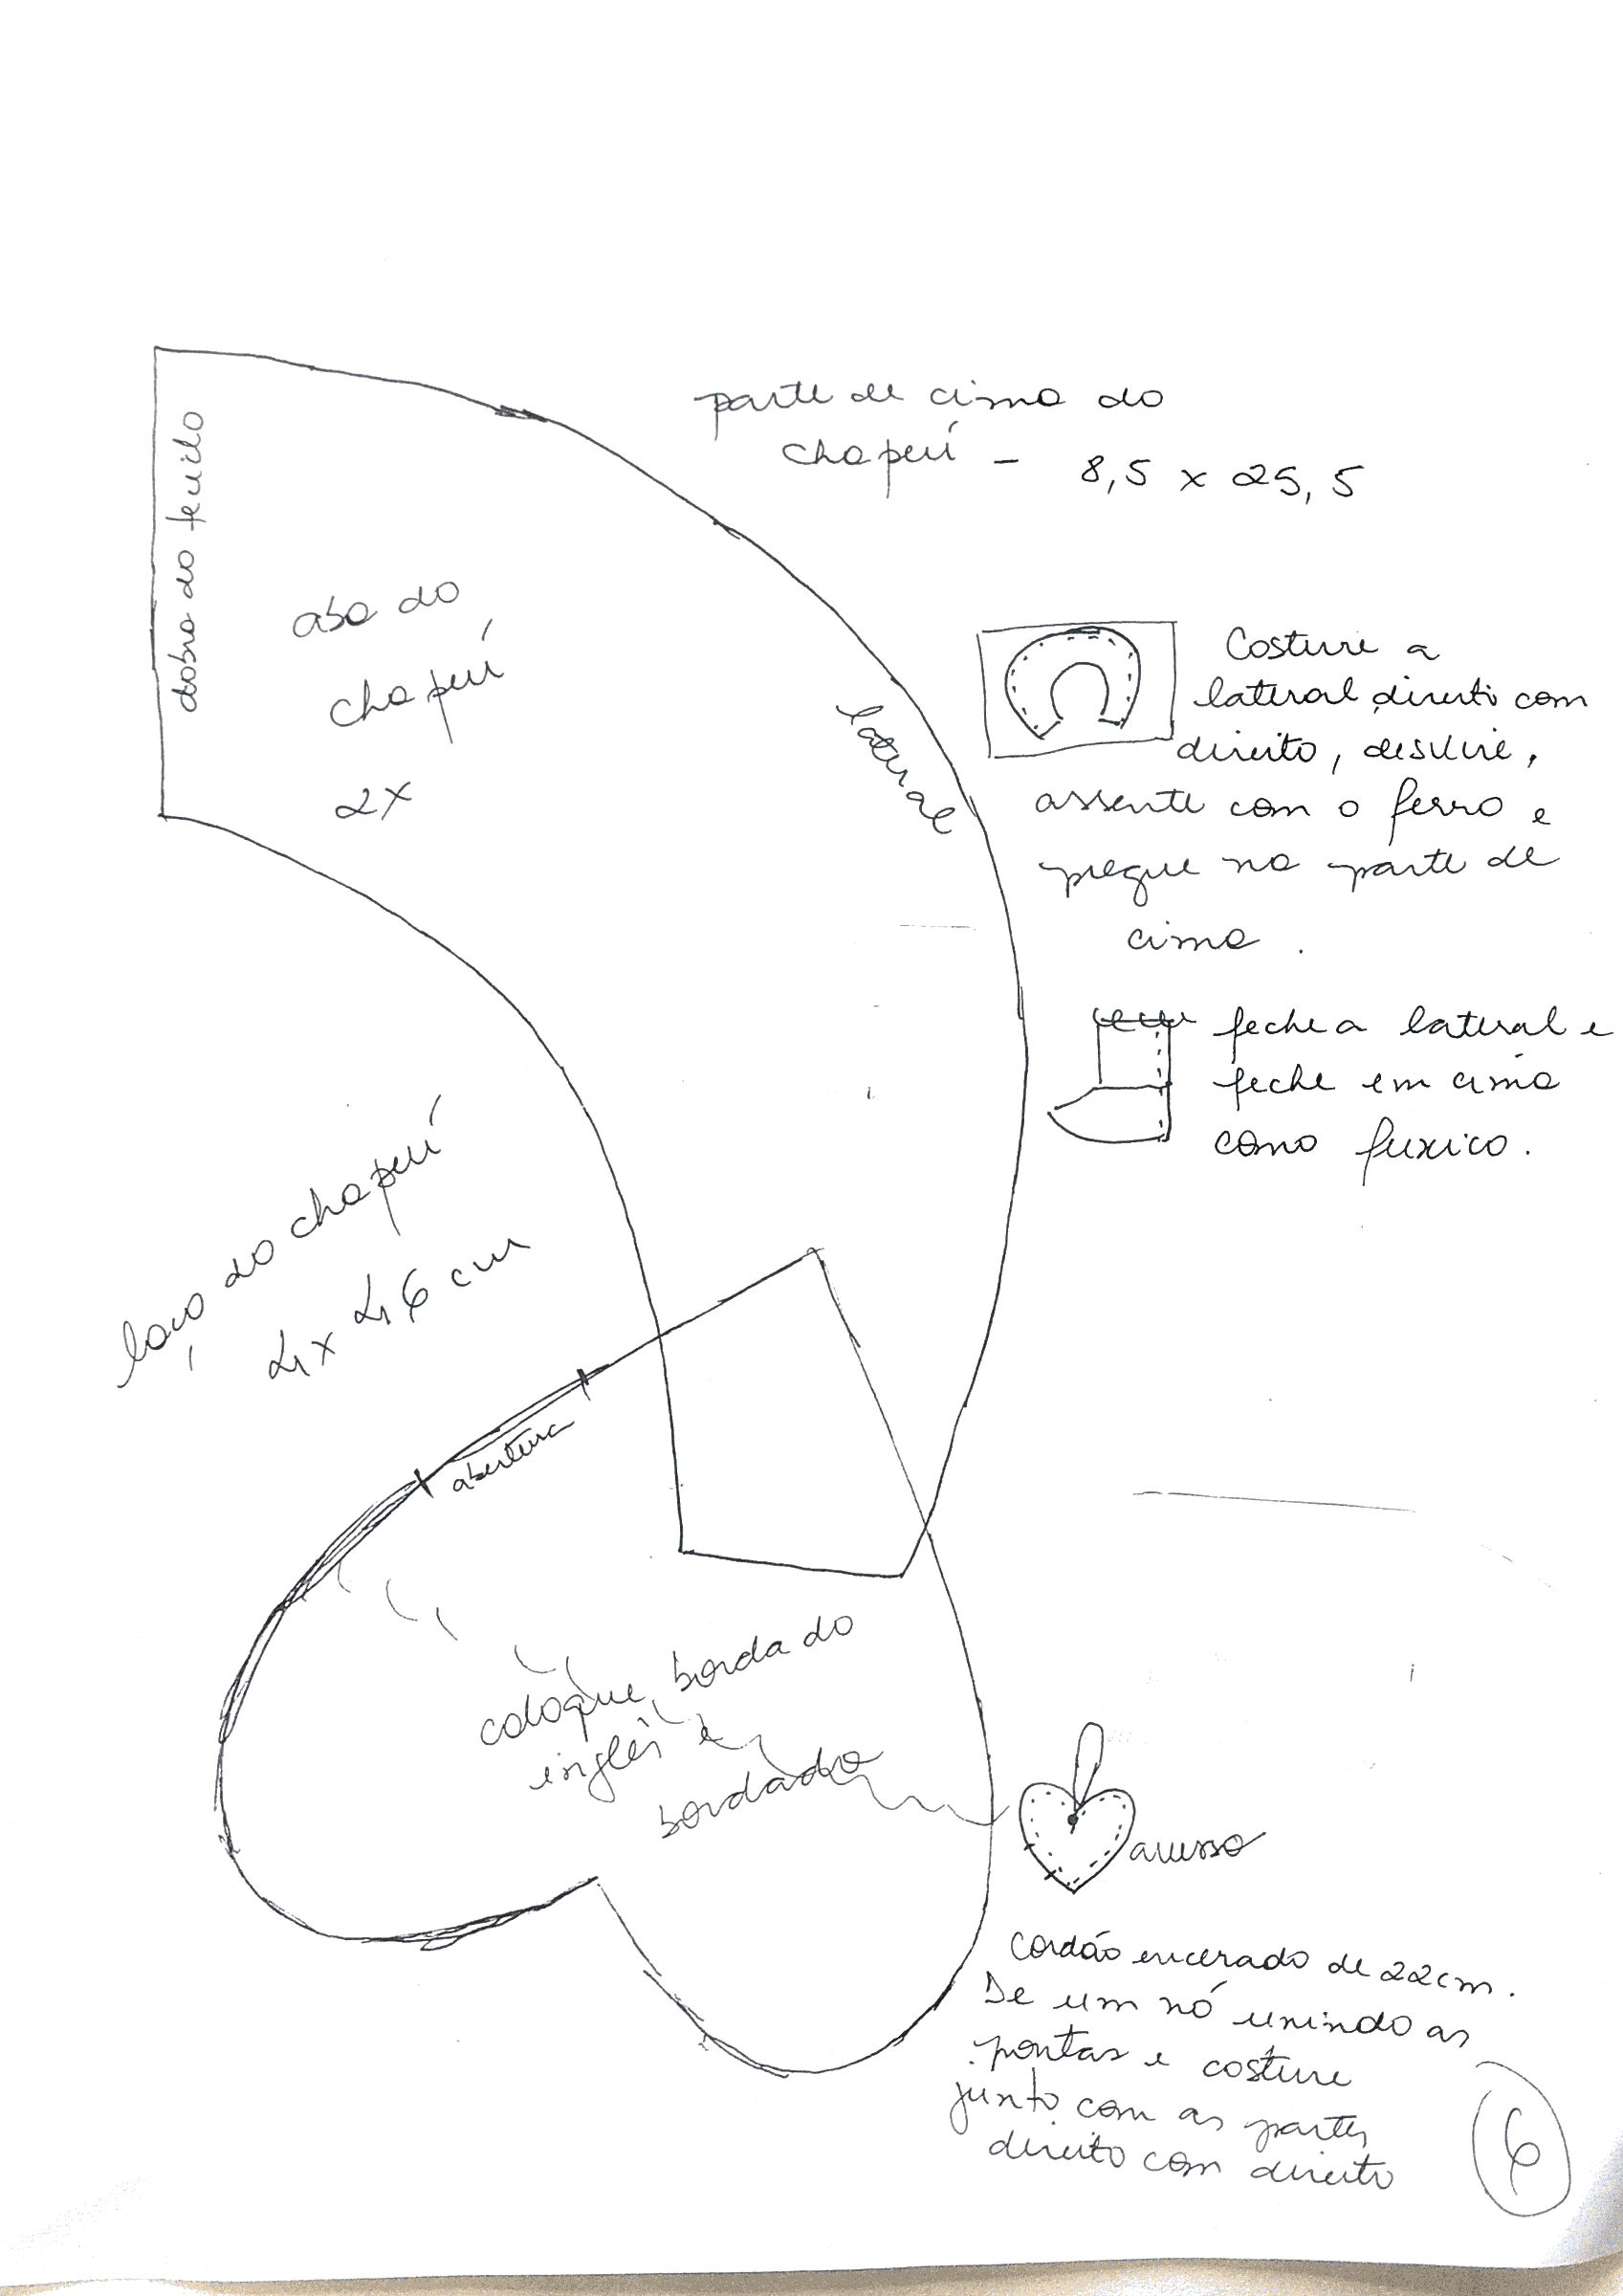 parte de cima do
chapéu - 8,5 x 25,5
dobra do tecido
aba do
chapéu
2x
lateral
Costure a
lateral direito com
direito, desvire,
assente com o ferro e
pregue na parte de
cima.
feche a lateral e
feche em cima
como fuxico.
laço do chapéu
4 x 46 cm
abertura
coloque bordado
inglês e
bordado
avesso
Cordão encerado de 22cm.
De um nó unindo as
pontas e costure
junto com as partes
direito com direito
6